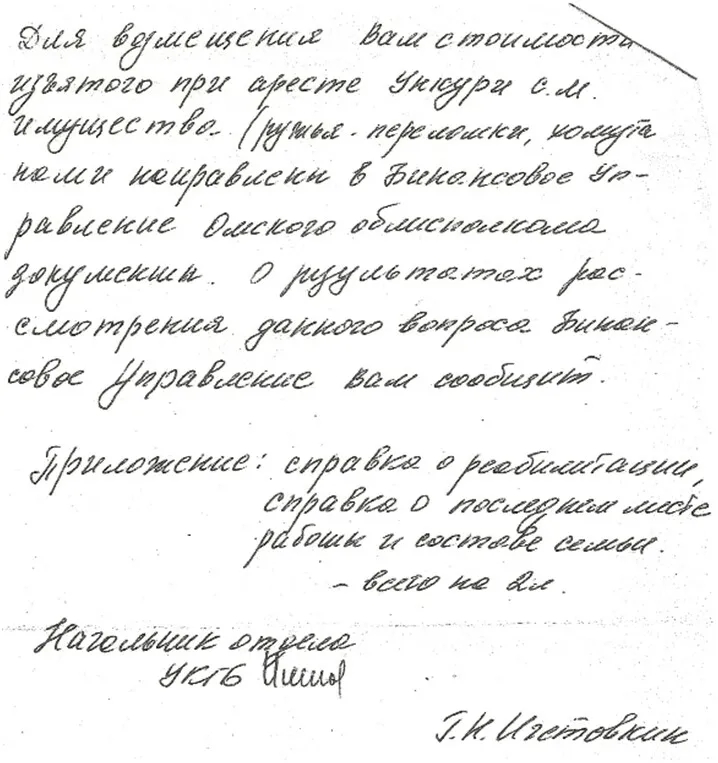 Для возмещения Вам стоимости
изъятого при аресте Ункури С.М.
имущества (ружья-переломки, хомута
нами направлены в Финансовое Уп-
равление Омского облисполкома
документы. О результатах рас-
смотрения данного вопроса Финан-
совое Управление Вам сообщит.
Приложение: справка о реабилитации,
справка о последнем месте
работы и составе семьи.
- всего на 2 л.
Начальник отдела
УКГБ
Г.Н. Игстовкин